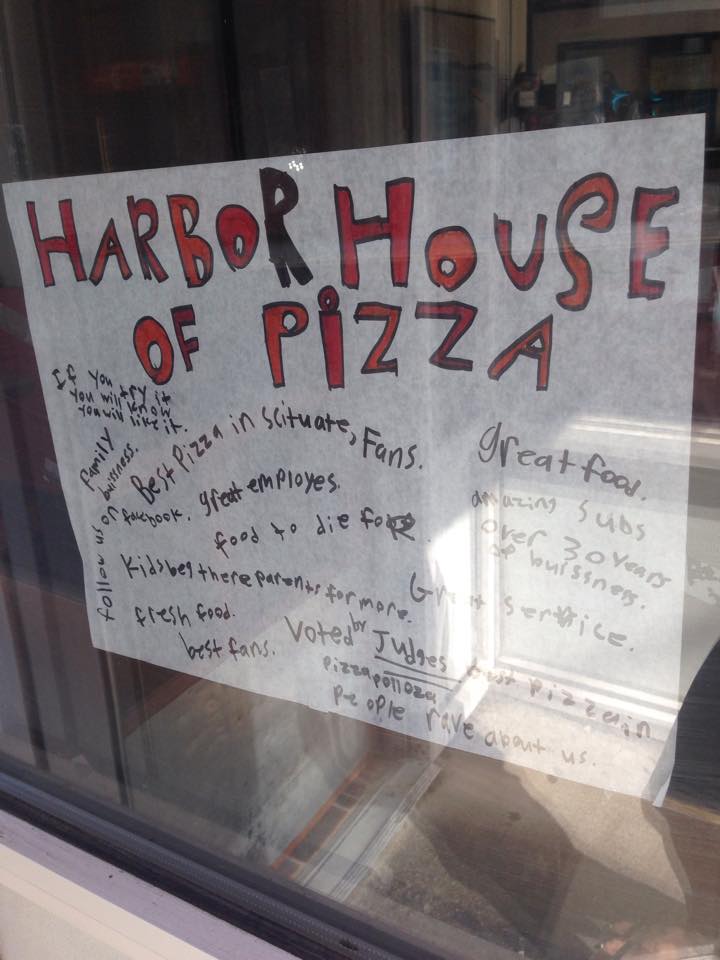 HARBOR HOUSE
OF PiZZA
If you try it
you will know
you will like it.
family
buissness.
Best Pizza in Scituate, Fans.
great food.
follow us on facebook.
great employes.
amazing subs
food to die foR
over 30 years
of buissness.
Kids beg there parents for more.
Great service.
fresh food.
best fans.
Voted by Judges best pizza in
pizzapolloza
people rave about us.